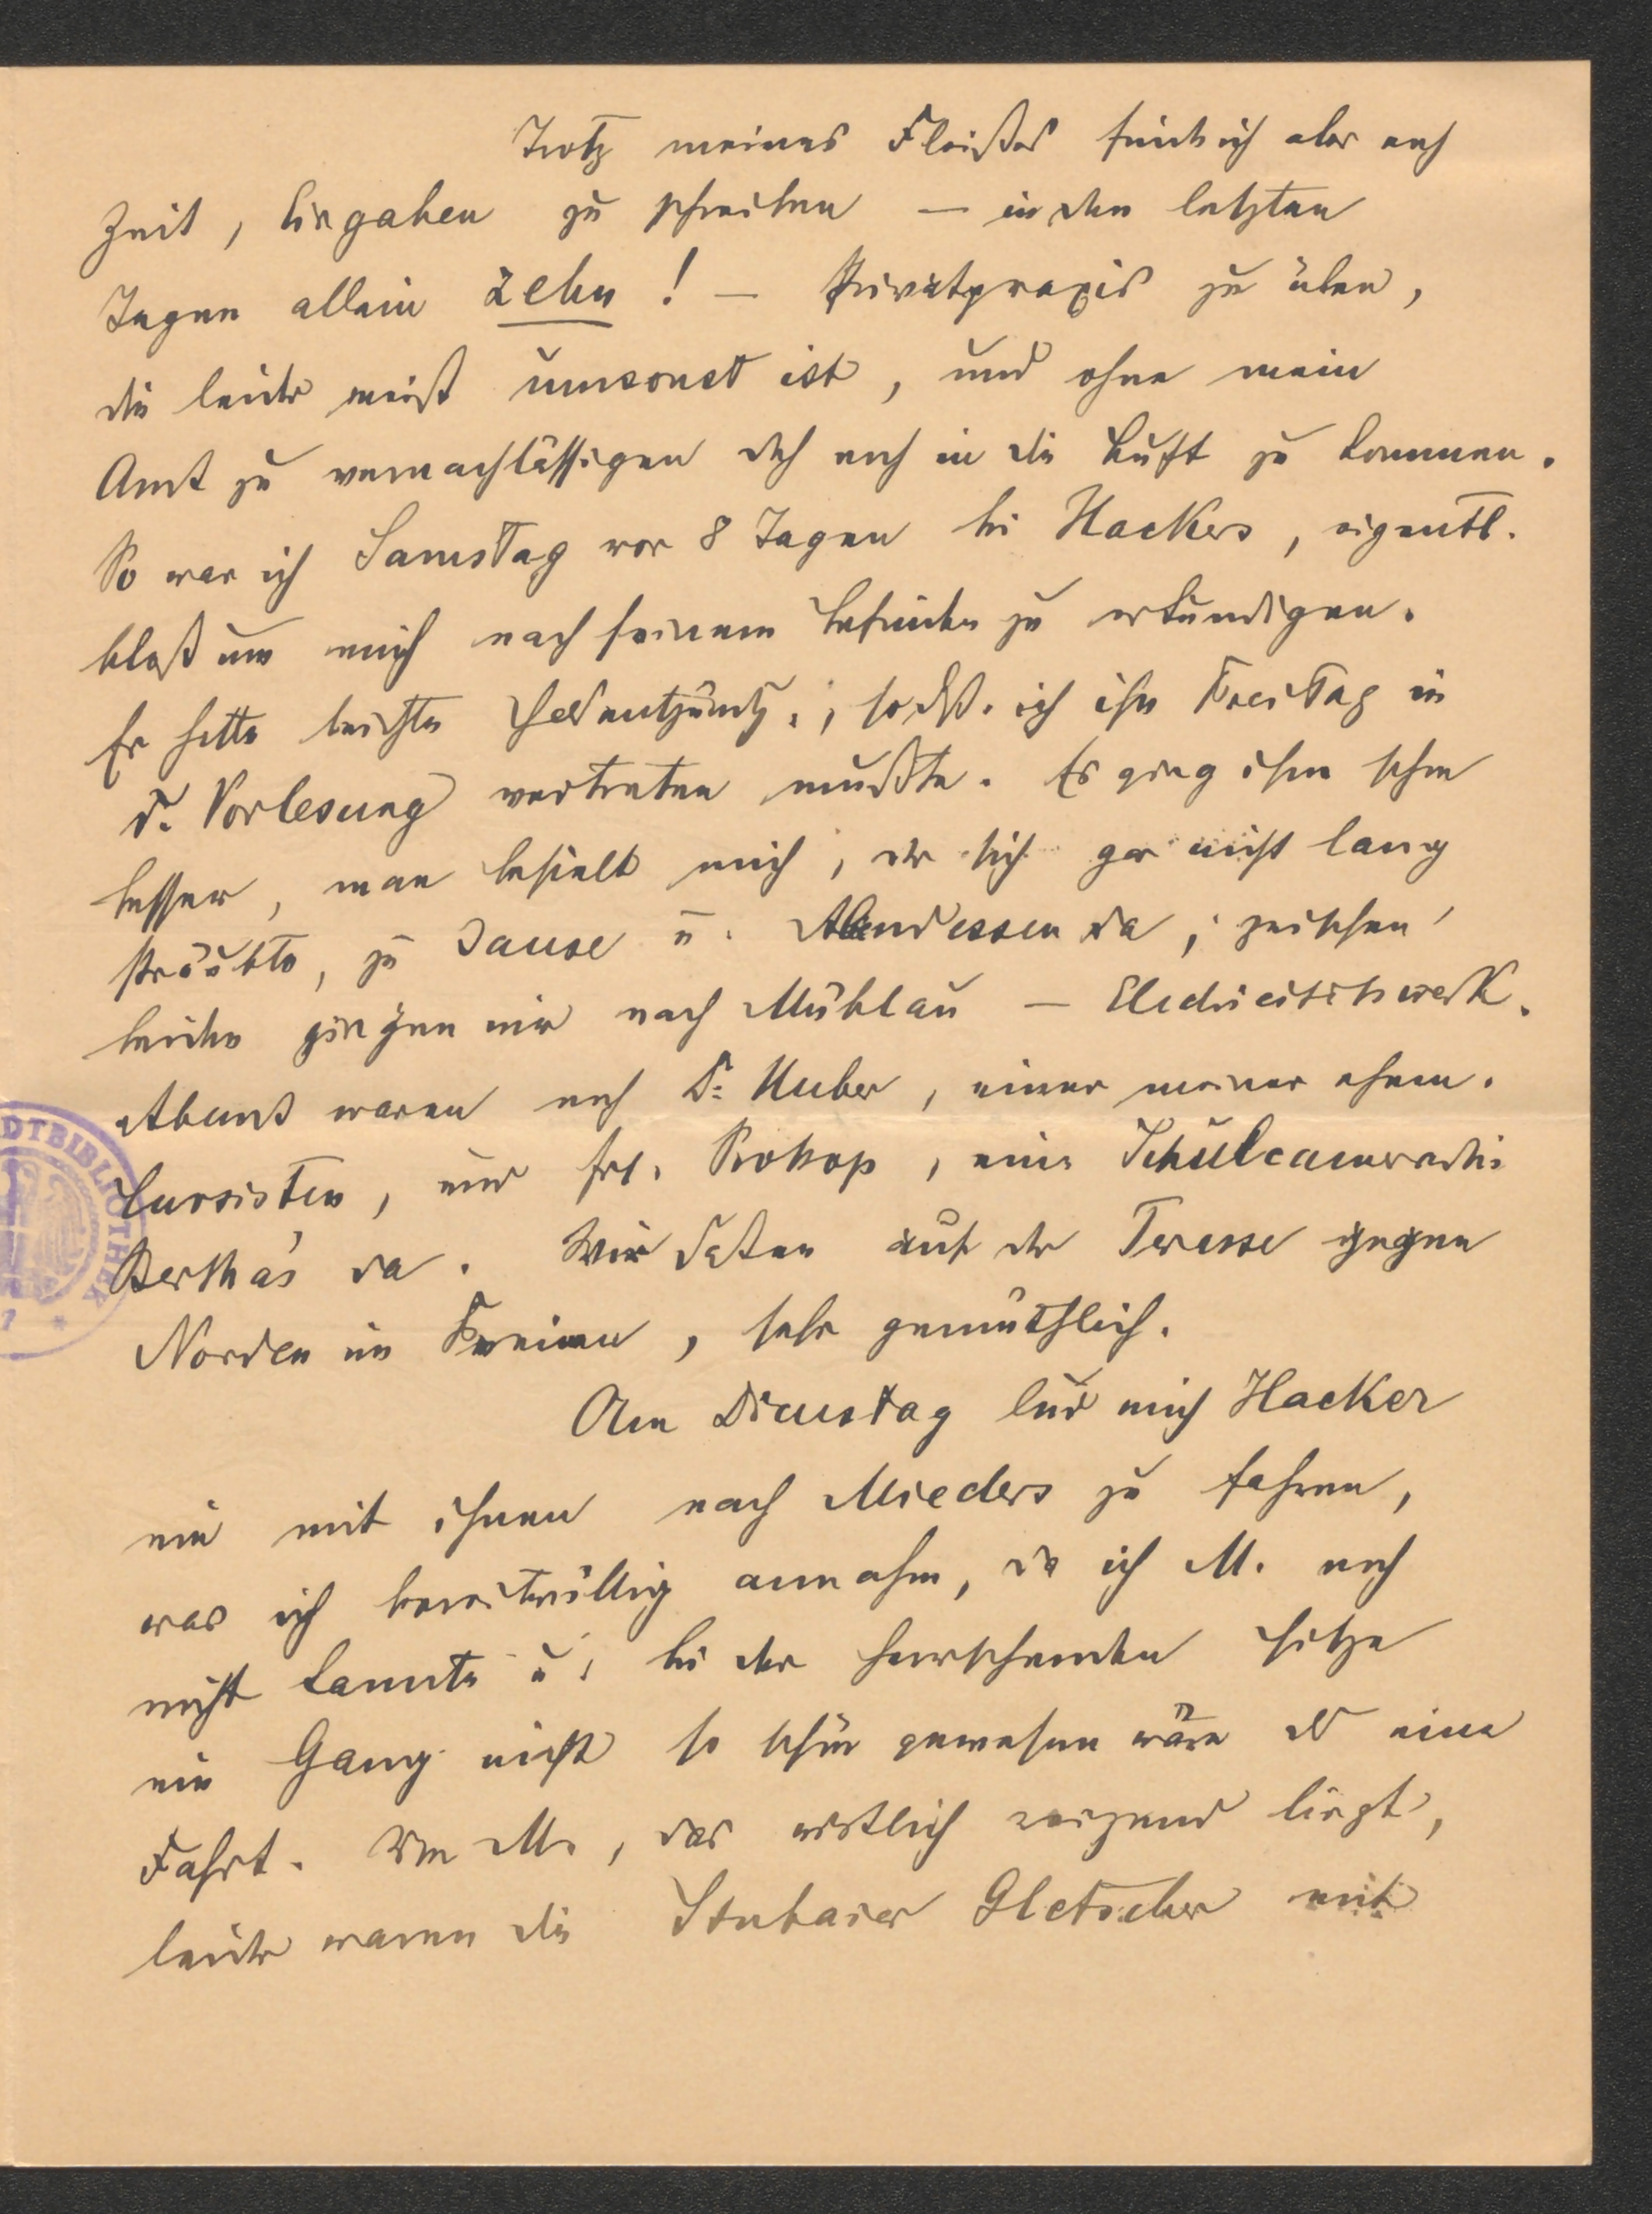 Trotz meines Fleißes find ich aber noch
Zeit, Eingaben zu schreiben — in den letzten
Tagen allein zehn! — Privatpraxis zu üben,
die leider meist umsonst ist, und ohne mein
Amt zu vernachlässigen doch noch in die Luft zu kommen.
So war ich Samstag vor 8 Tagen bei Hackers, eigentl.
bloß um mich nach seinem Befinden zu erkundigen.
Er hatte leichte Halsentzündg., sodß. ich ihn Freitag in
d. Vorlesung vertreten mußte. Es ging ihm schon
besser, man behielt mich, der sich gar nicht lang
sträubte, zu Jause u. Abendessen da; zwischen
beiden gingen wir nach Mühlau — Electricitätswerk.
Abends waren noch Dr. Huber, einer meiner ehem.
Cursisten, und Frl. Prokop, eine Schulcameradin
Bertha's da. Wir saßen auf der Terasse gegen
Norden im Freien, sehr gemüthlich.
Am Dienstag lud mich Hacker
ein mit ihnen nach Mieders zu fahren,
was ich bereitwillig annahm, da ich M. noch
nicht kannte u. bei der herrschenden Hitze
ein Gang nicht so schön gewesen wäre als eine
Fahrt. Von M., das östlich reizend liegt,
leider waren die Stubaier Gletscher mit
DTBIBLIOTHEK